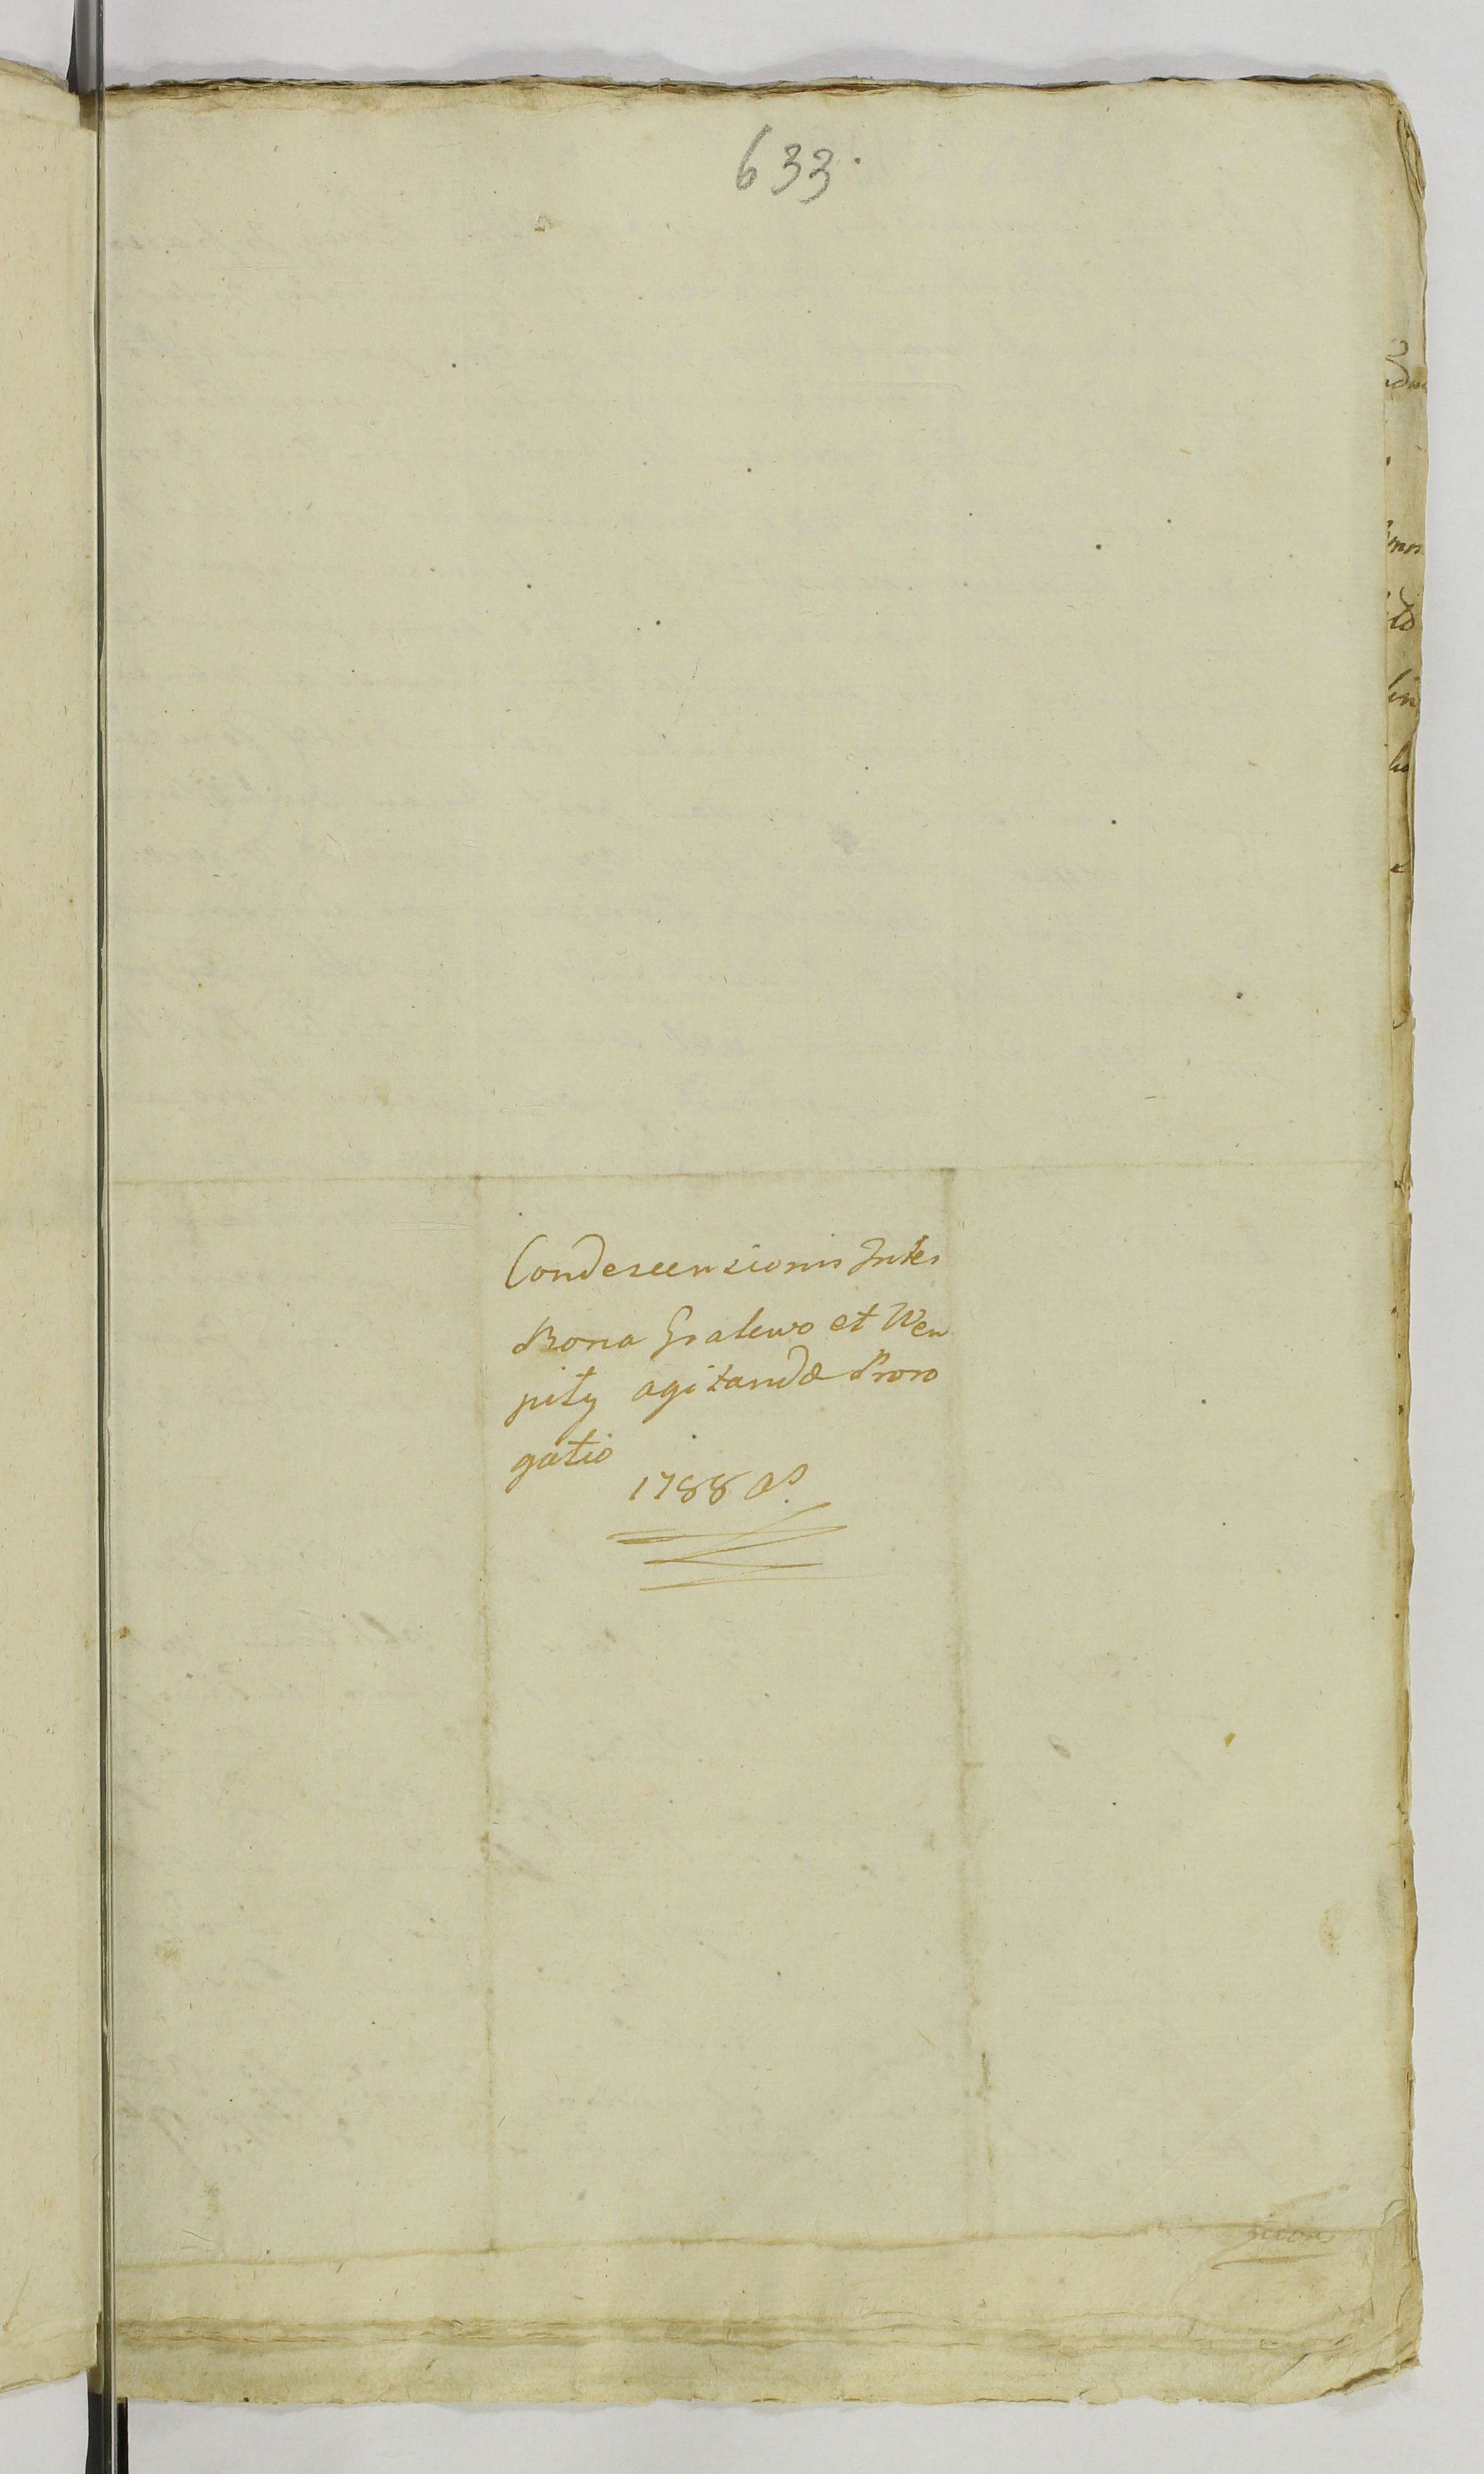 633.
Condescensionis Inter
Bona Gralewo et Wem
pity agitandæ Proro
gatio
1788 as.